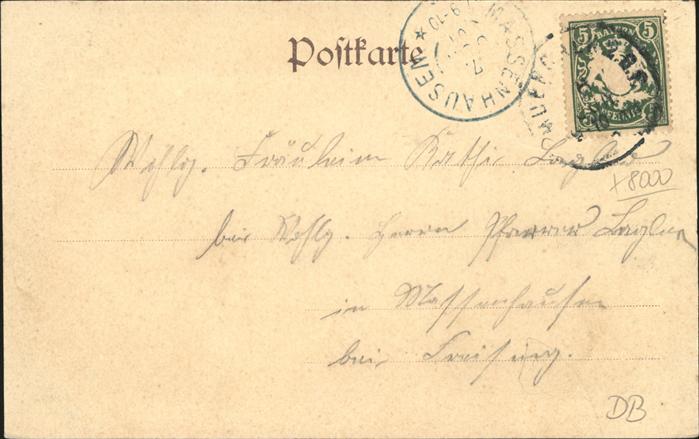 Postkarte
MASSENHAUSEN
5 BAYERN 5
PFENNIG
Wohlg. Fräulein Kathi
bei Wohlg. Herrn Pfarrer
x8000
in Massenhausen
bei Freising.
DB